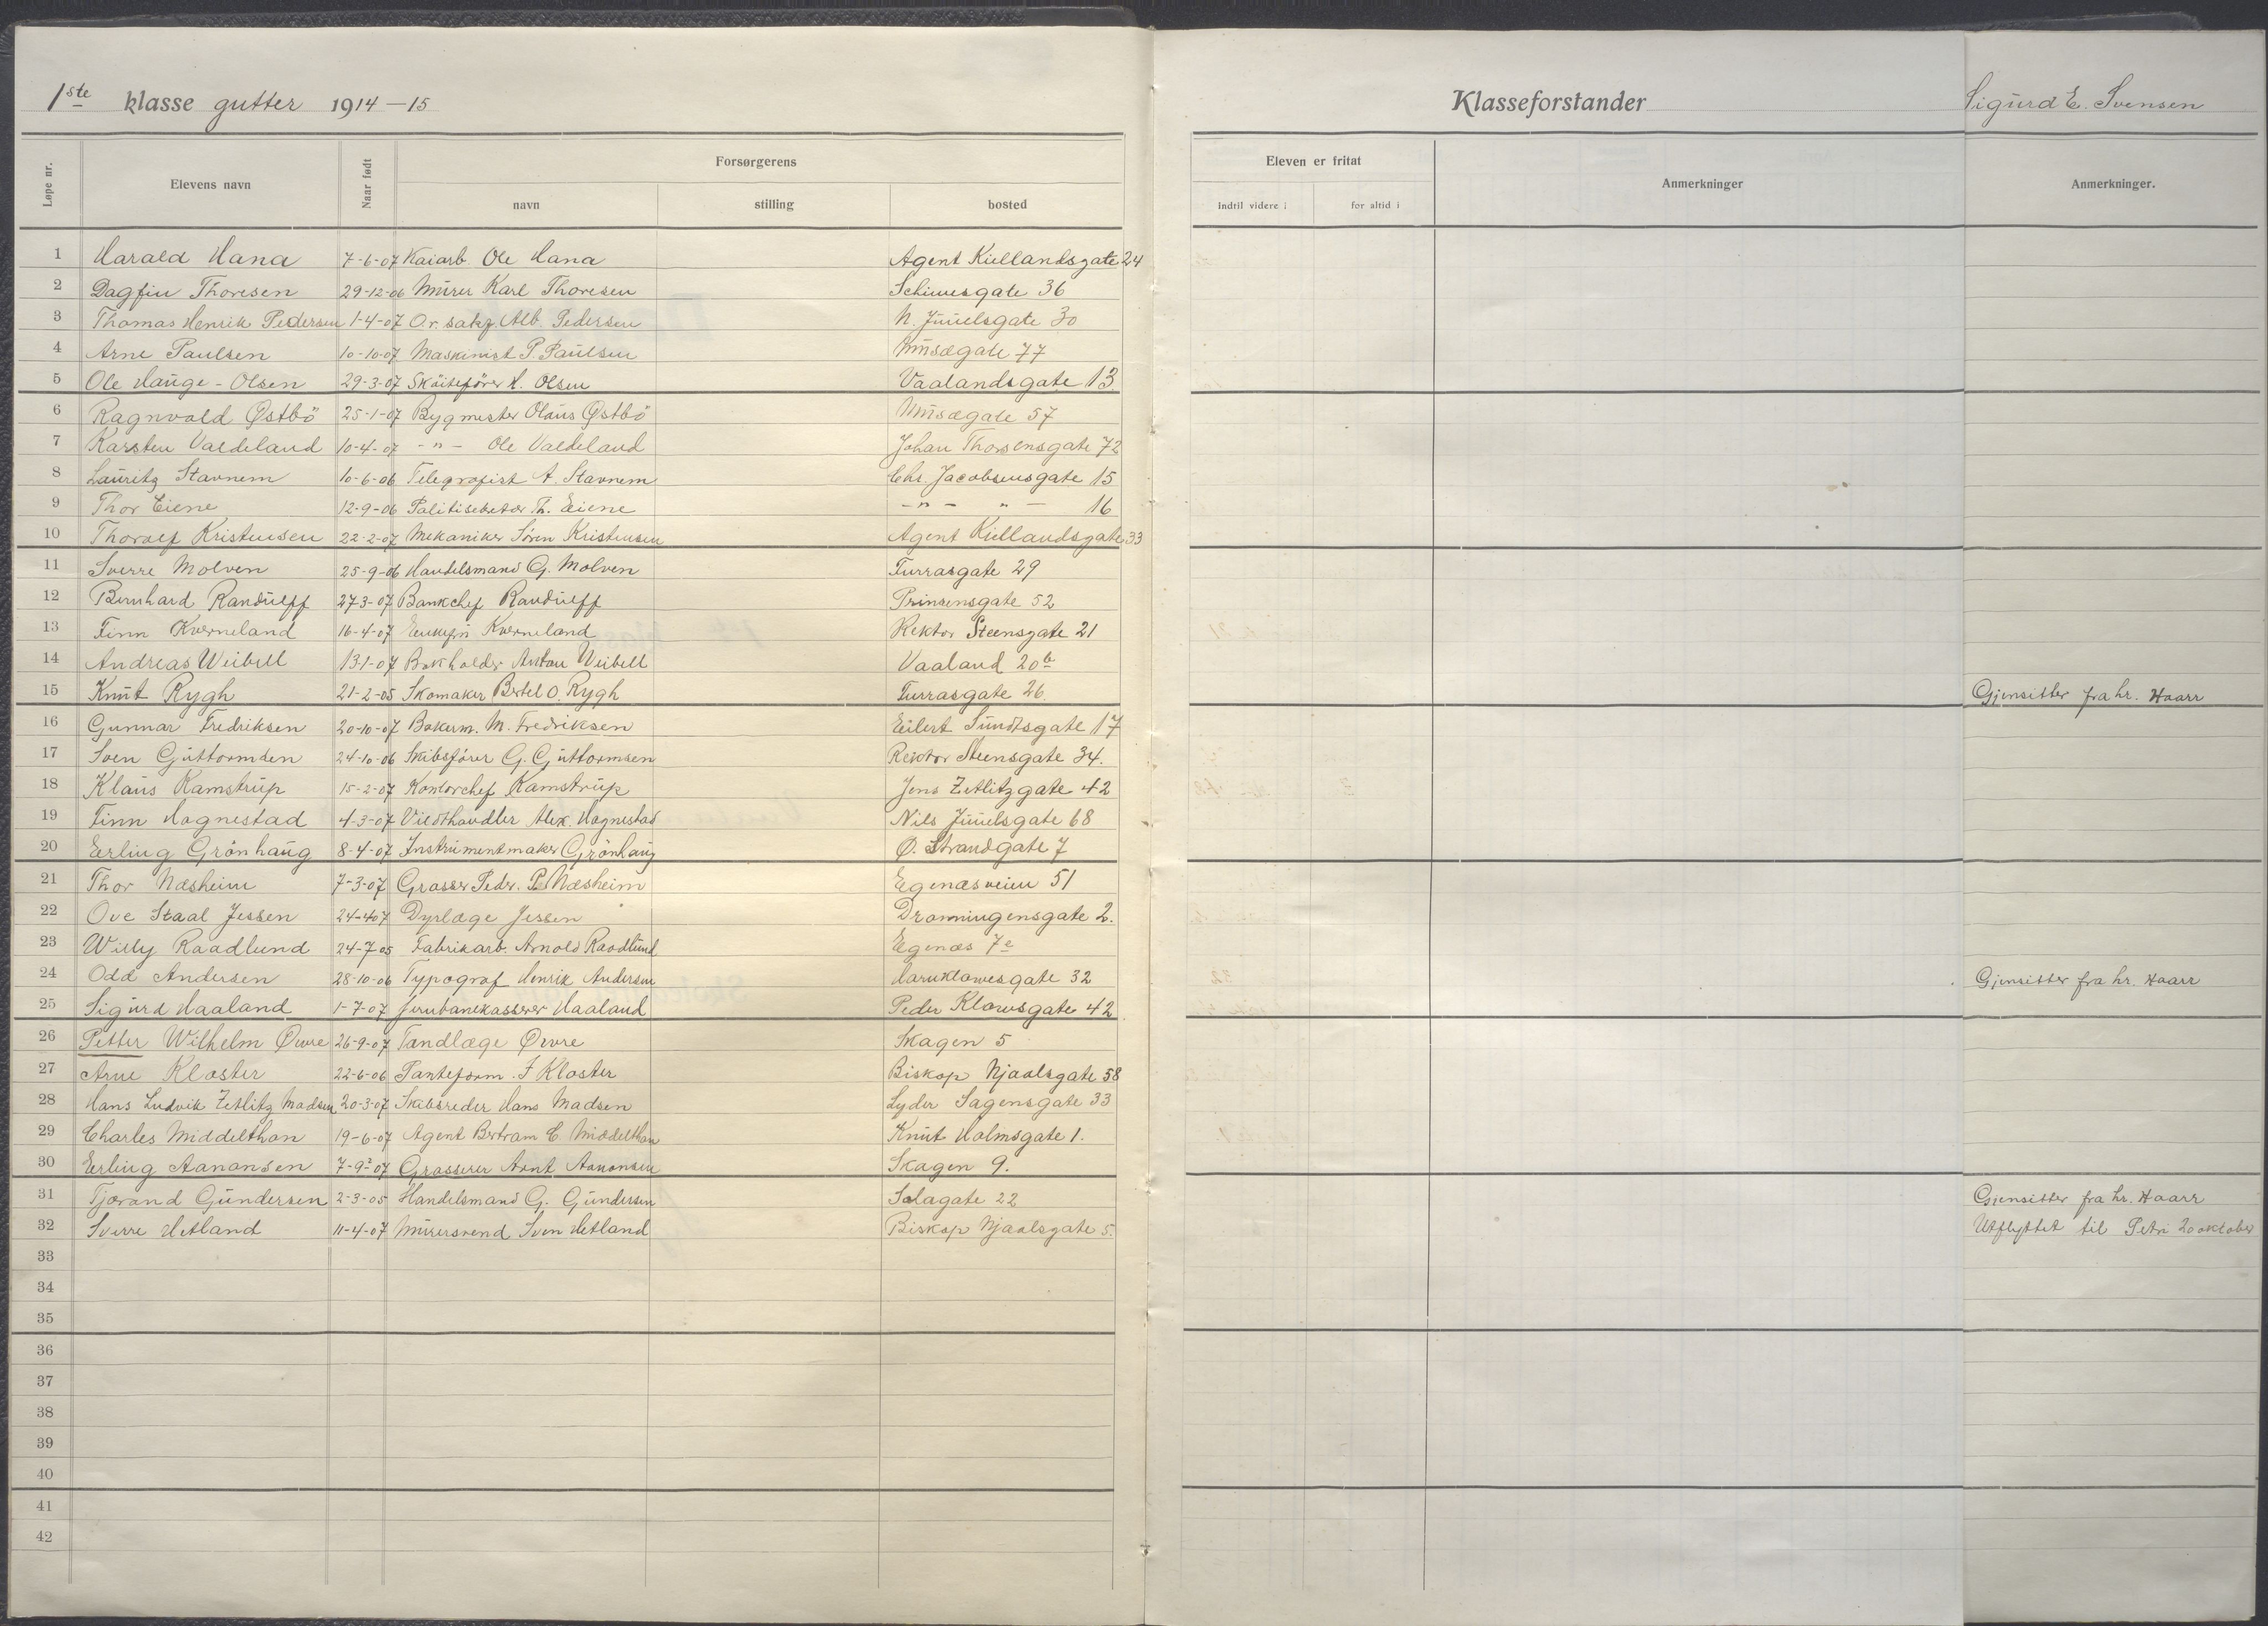 1ste klasse gutter 1914-15
Klasseforstander Sigurd E. Svensen
Løpe nr. Elevens navn Naar født Forsørgerens navn stilling bosted
Eleven er fritat Indtil videre i for altid i Anmerkninger Anmerkninger.
1 Harald Hana 7-6-07 Kaiarb. Ole Hana Agent Kiellandsgate 24
2 Dagfin Thoresen 29-12-06 Murer Karl Thoresen Schiwesgate 36
3 Thomas Henrik Pedersen 1-4-07 O.r. sakf. Alb. Pedersen N. Juuelsgate 30
4 Arne Paulsen 10-10-07 Maskinist P. Paulsen Musægate 77
5 Ole Hauge-Olsen 29-3-07 Skøitefører H. Olsen Vaalandsgate 13
6 Ragnvald Østbö 25-1-07 Bygmester Olaus Østbö Musægate 57
7 Karsten Valdeland 10-4-07 -"- Ole Valdeland Johan Thorsensgate 72
8 Lauritz Stavnem 10-6-06 Telegrafist A. Stavnem Chs. Jacobsensgate 15
9 Thor Eiene 12-9-06 Th. Eiene -"- "- 16
10 Thoralf Kristensen 22-2-07 Mekaniker Sören Kristensen Agent Kiellandsgate 33
11 Sverre Molven 25-9-06 Handelsmand G. Molven Turrasgate 29
12 Bernhard Randulff 27-3-07 Bankchef Randulff Prinsensgate 52
13 Finn Kverneland 16-4-07 Enkefru Kverneland Rektor Steensgate 21
14 Andreas Weibell 13-1-07 Bokholder Anton Weibell Vaaland 20b
15 Knut Rygh 21-2-05 Skomaker Bertel O. Rygh Turrasgate 26. Gjensitter fra hr. Haarr
16 Gunnar Fredriksen 20-10-07 Bakerm. M. Fredriksen Eilert Sundtsgate 17
17 Sven Guttormden 24-10-06 Skibsfører G. Guttormsen Rektor Steensgate 34.
18 Klaus Kamstrup 15-2-07 Kontorchef Kamstrup Jens Zetlitzgate 42
19 Finn Hagnestad 4-3-07 Vildthandler Alex. Hagnestad Nils Juuelsgate 68
20 Erling Grönhaug 8-4-07 Instrumentmaker Grönhaug Ø. Strandgate 7
21 Thor Næsheim 7-3-07 Grosser Peder. P. Næsheim Egenæsveien 51
22 Ove Staal Jessen 24-4-07 Dyrlæge Jessen Dronningensgate 2.
23 Willy Raadlund 24-7-05 Fabrikarb. Arnold Raadlund Egenæs 7e
24 Odd Andersen 28-10-06 Typograf Henrik Andersen 32 Gjensitter fra hr. Haarr
25 Sigurd Haaland 1-7-07 Jernbanekasserer Haaland Peder Klowsgate 42
26 Petter Wilhelm Øvre 26-9-07 Tandlæge Øvre Skagen 5
27 Arne Kloster 22-6-06 Panteform. J Kloster Biskop Njaalsgate 58
28 Hans Ludvik Zetlitz Madsen 20-3-07 Skibsreder Hans Madsen Lyder Sagensgate 33
29 Charles Middelthon 19-6-07 Agent Bertram C. Middelthon Knut Holmsgate 1.
30 Erling Aanonsen 7-9-07 Grosserer Arnt Aanonsen Skagen 9.
31 Tjerand Gundersen 2-3-05 Handelsmand G. Gundersen Solagate 22 Gjensitter fra hr. Haarr
32 Sverre Hetland 11-4-07 Murersvend Sven Hetland Biskop Njaalsgate 5. Utflyttet til Petri 20 oktober
33
34
35
36
37
38
39
40
41
42